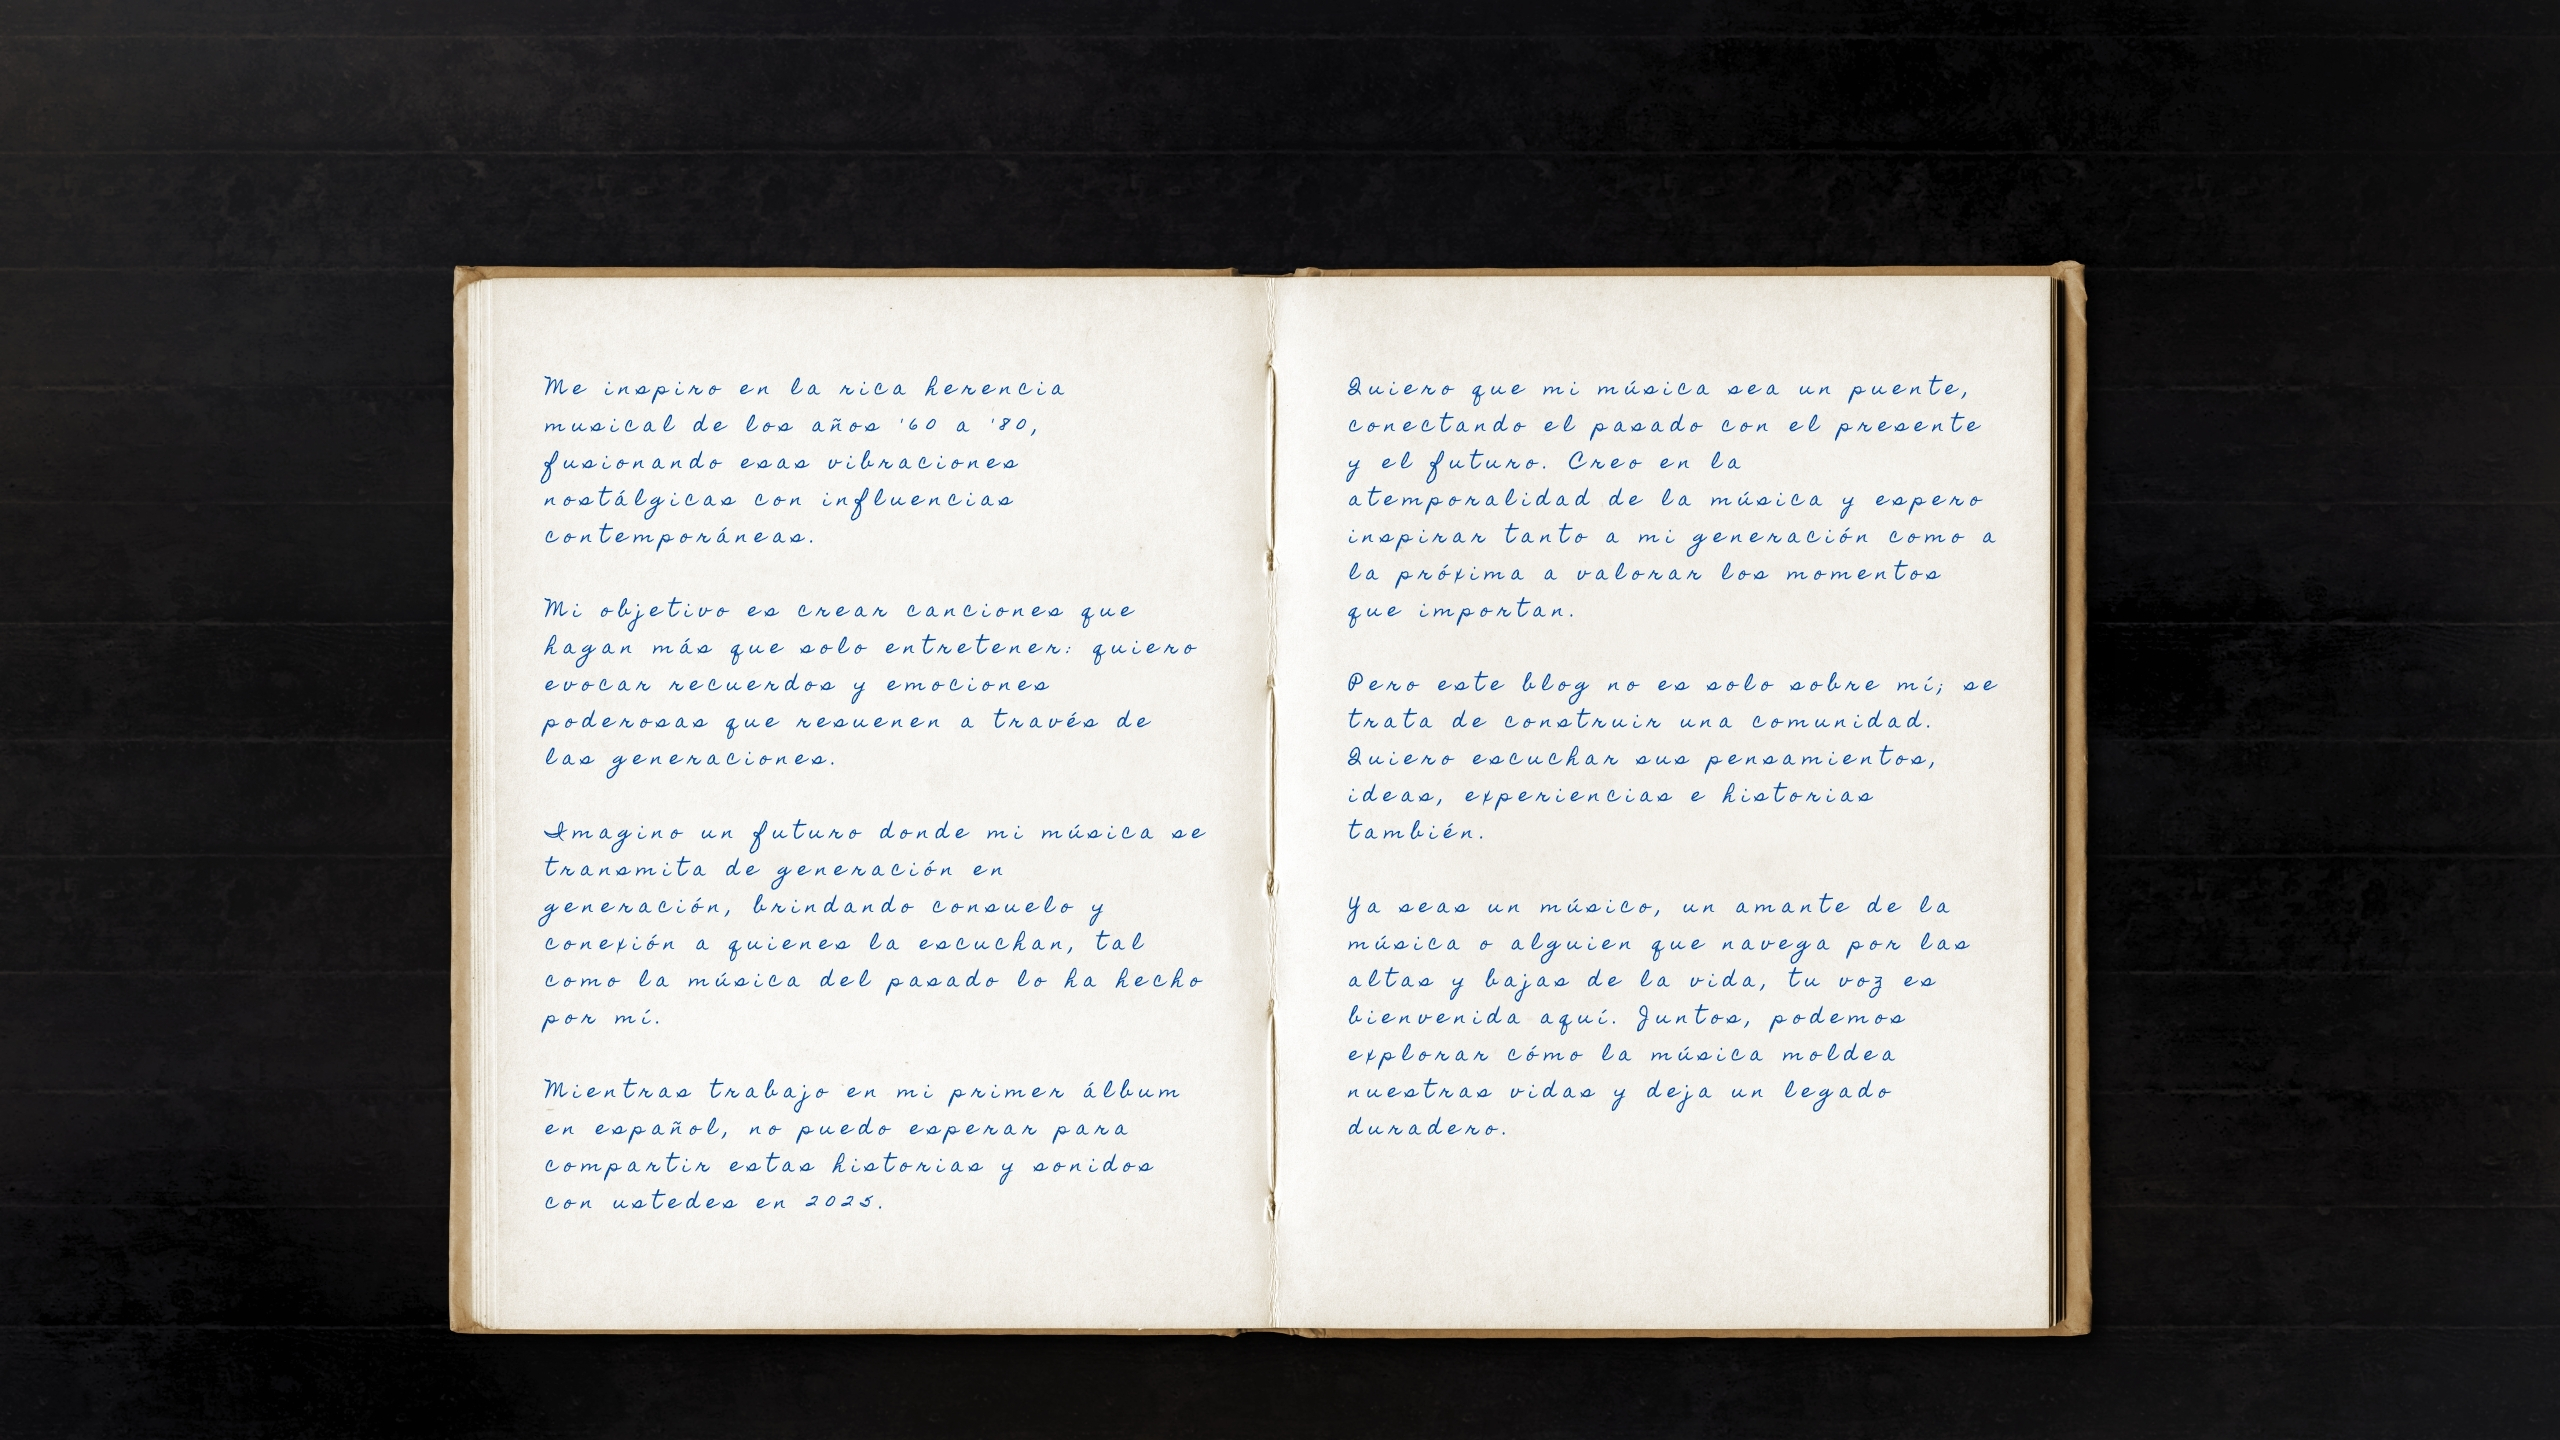 Me inspiro en la rica herencia
musical de los años '60 a '80,
fusionando esas vibraciones
nostálgicas con influencias
contemporáneas.
Mi objetivo es crear canciones que
hagan más que solo entretener: quiero
evocar recuerdos y emociones
poderosas que resuenen a través de
las generaciones.
Imagino un futuro donde mi música se
transmita de generación en
generación, brindando consuelo y
conexión a quienes la escuchan, tal
como la música del pasado lo ha hecho
por mí.
Mientras trabajo en mi primer álbum
en español, no puedo esperar para
compartir estas historias y sonidos
con ustedes en 2025.
Quiero que mi música sea un puente,
conectando el pasado con el presente
y el futuro. Creo en la
atemporalidad de la música y espero
inspirar tanto a mi generación como a
la próxima a valorar los momentos
que importan.
Pero este blog no es solo sobre mí; se
trata de construir una comunidad.
Quiero escuchar sus pensamientos,
ideas, experiencias e historias
también.
Ya seas un músico, un amante de la
música o alguien que navega por las
altas y bajas de la vida, tu voz es
bienvenida aquí. Juntos, podemos
explorar cómo la música moldea
nuestras vidas y deja un legado
duradero.